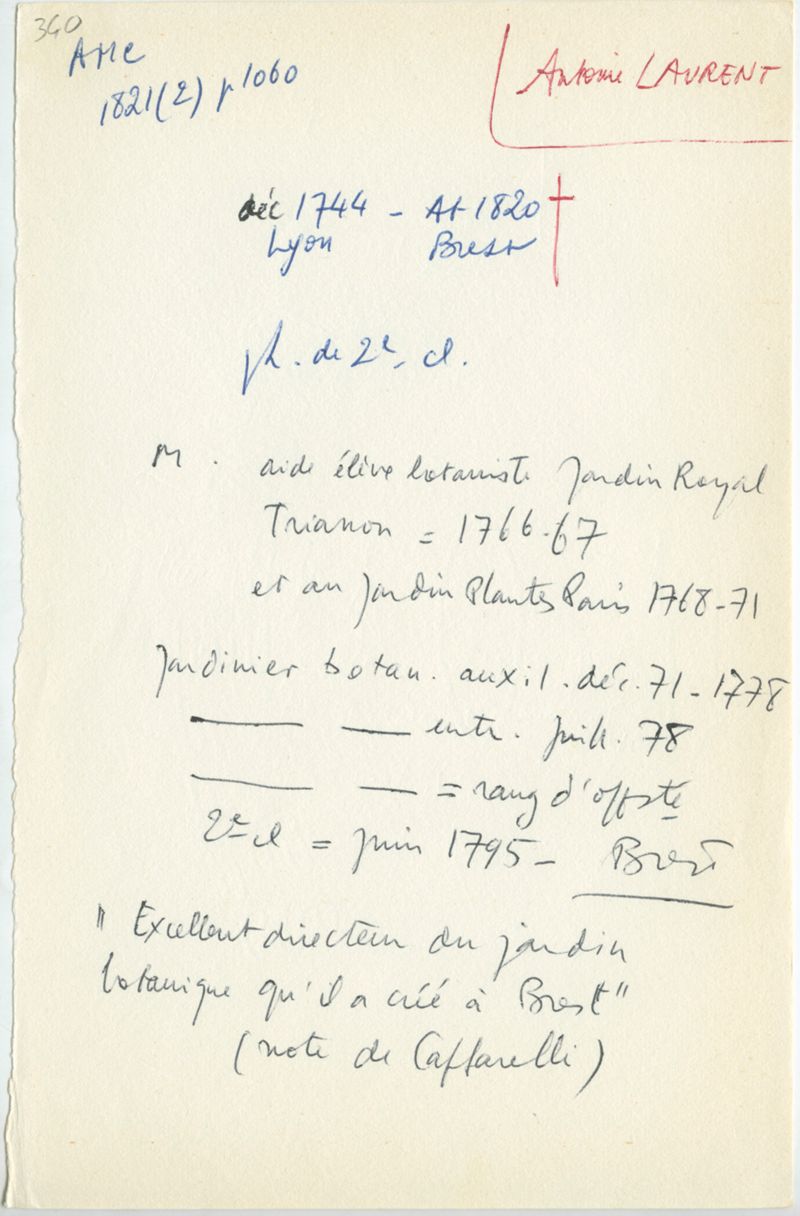 340
AMC
1821(2) p 1060
Antoine LAURENT
déc 1744 - At 1820 †
Lyon Brest
ph. de 2e cl.
M. aide élève botaniste Jardin Royal
Trianon = 1766-67
et au Jardin Plantes Paris 1768-71
Jardinier botan. auxil. déc. 71 - 1778
—— — entr. Juill. 78
—— — = rang d'offste
2e cl = juin 1795 - Brest
" Excellent directeur du jardin
botanique qu'il a créé à Brest"
(note de Caffarelli)